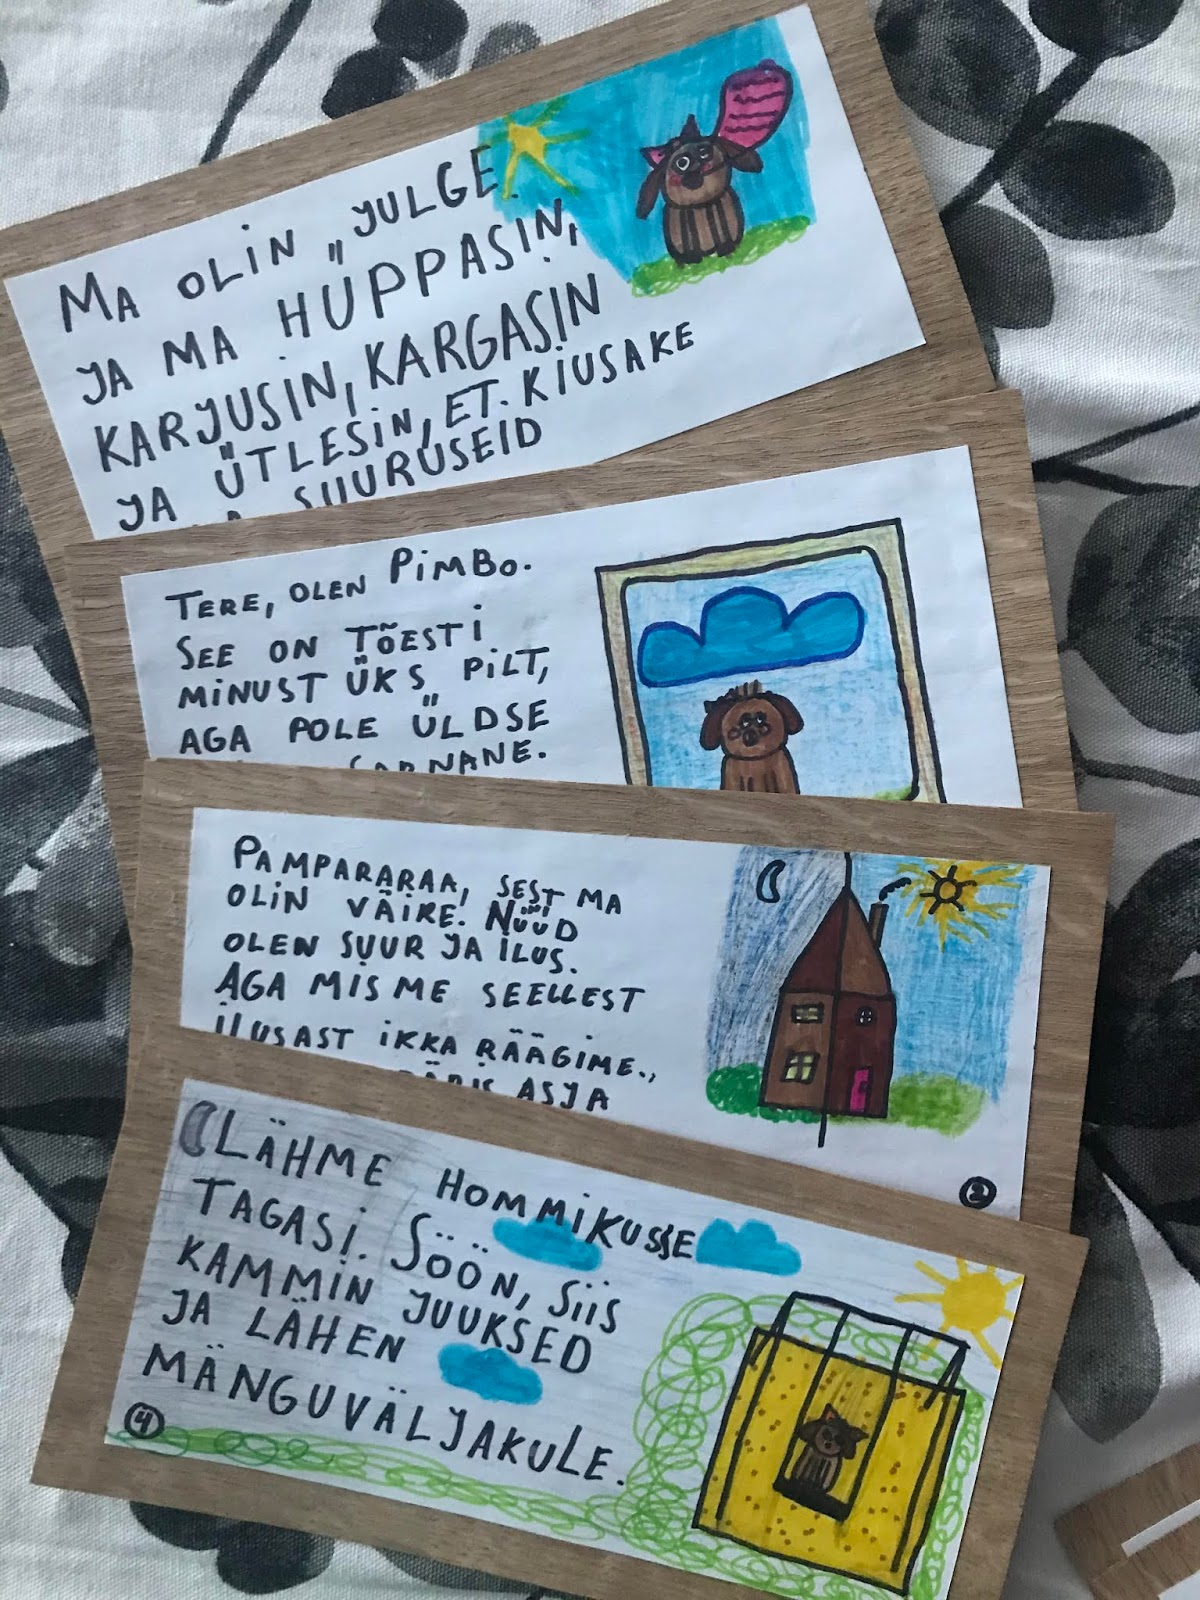 MA OLIN „JULGE
JA MA HÜPPASIN,
KARJUSIN, KARGASIN
JA ÜTLESIN, ET. KIUSAKE
SUURUSEID
TERE, OLEN PIMBO.
SEE ON TÕESTI
MINUST ÜKS PILT,
AGA POLE ÜLDSE
SARNANE.
PAMPARARAA, SEST MA
OLIN VÄIKE. NÜÜD
OLEN SUUR JA ILUS.
AGA MIS ME SEELLEST
ILUSAST IKKA RÄÄGIME.,
ASJA
2
LÄHME HOMMIKUSSE
TAGASI. SÖÖN, SIIS
KAMMIN JUUKSED
JA LÄHEN
MÄNGUVÄLJAKULE.
4